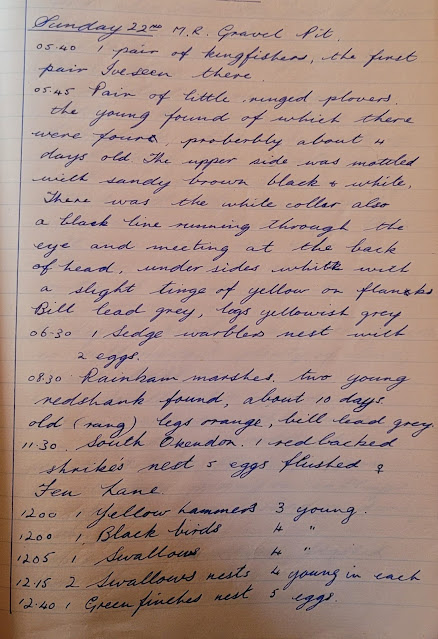 Sunday 22nd M.R. Gravel Pit.
05.40 1 pair of kingfishers, the first
pair Ive seen there.
05.45 Pair of little ringed plovers,
the young found of which there
were four, proberbly about 4
days old The upper side was motiled
with sandy brown black & white,
There was the white collar also
a black line running through the
eye and meeting at the back
of head, under sides white with
a slight tinge of yellow on flanks
Bill lead grey, legs yellowish grey
06.30 1 Sedge warblers nest with
2 eggs.
08.30 Rainham marshes, two young
redshank found, about 10 days
old (rang) legs orange, bill lead grey
11.30. South Okendon. 1 redbacked
shrike's nest 5 eggs flushed ♀
Fen Lane.
1200 1 Yellow hammers 3 young.
1200 1 Black birds 4 "
1205 1 Swallows 4 "
12.15 2 Swallows nests 4 young in each
12.40 1 Greenfinches nest 5 eggs.